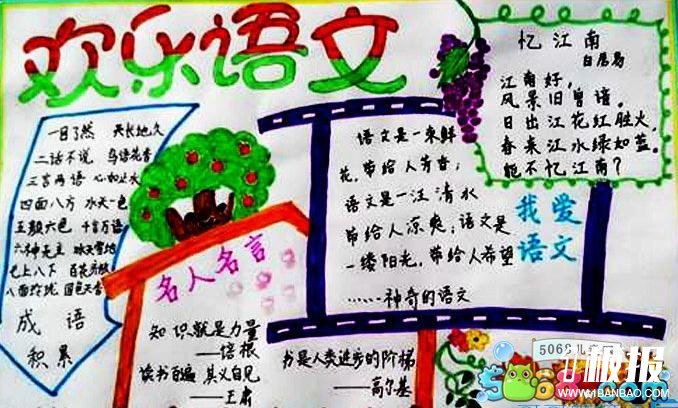 欢乐语文
一目了然 天长地久
二话不说 鸟语花香
三言两语 心如止水
四面八方 水天一色
五颜六色 千言万语
六神无主 冰天雪地
七上八下 百花齐放
八面玲珑 国色天香
成语
积累
名人名言
知识就是力量
——培根
读书百遍 其义自见
——王肃
书是人类进步的阶梯
——高尔基
语文是一束鲜
花,带给人芳香;
语文是一汪清水
带给人凉爽;语文是
一缕阳光,带给人希望
……神奇的语文
我爱
语文
忆江南
白居易
江南好,
风景旧曾谙。
日出江花红胜火,
春来江水绿如蓝。
能不忆江南?
5068儿童网
小极报
WWW.1BANBAO.COM